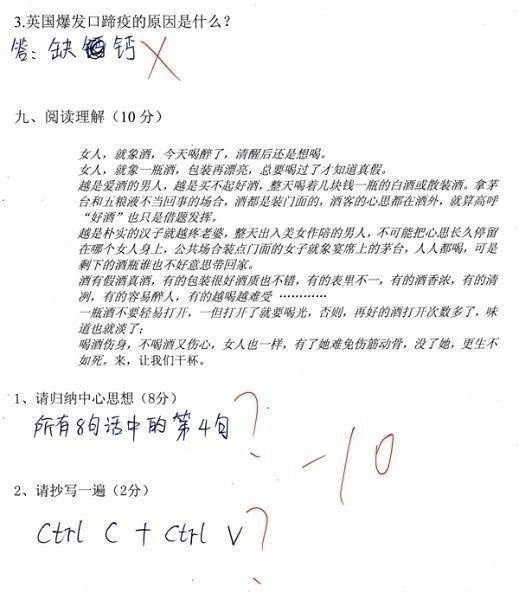 3.英国爆发口蹄疫的原因是什么？
答：缺钙
九、阅读理解（10 分）
女人，就象酒，今天喝醉了，清醒后还是想喝。
女人，就象一瓶酒，包装再漂亮，总要喝过了才知道真假。
越是爱酒的男人，越是买不起好酒，整天喝着几块钱一瓶的白酒或散装酒。拿茅
台和五粮液不当回事的场合，酒都是装门面的，酒客的心思都在酒外，就算高呼
“好酒”也只是借题发挥。
越是朴实的汉子就越疼老婆，整天出入美女作陪的男人，不可能把心思长久停留
在哪个女人身上，公共场合装点门面的女子就象宴席上的茅台，人人都喝，可是
剩下的酒瓶谁也不好意思带回家。
酒有假酒真酒，有的包装很好酒质也不错，有的表里不一，有的酒香浓，有的清
冽，有的容易醉人，有的越喝越难受 …………
一瓶酒不要轻易打开，一但打开了就要喝光，否则，再好的酒打开次数多了，味
道也就淡了；
喝酒伤身，不喝酒又伤心，女人也一样，有了她难免伤筋动骨，没了她，更生不
如死。来，让我们干杯。
1、请归纳中心思想（8分）
所有8句话中的第4句 ?
-10
2、请抄写一遍（2分）
Ctrl C + Ctrl V ?